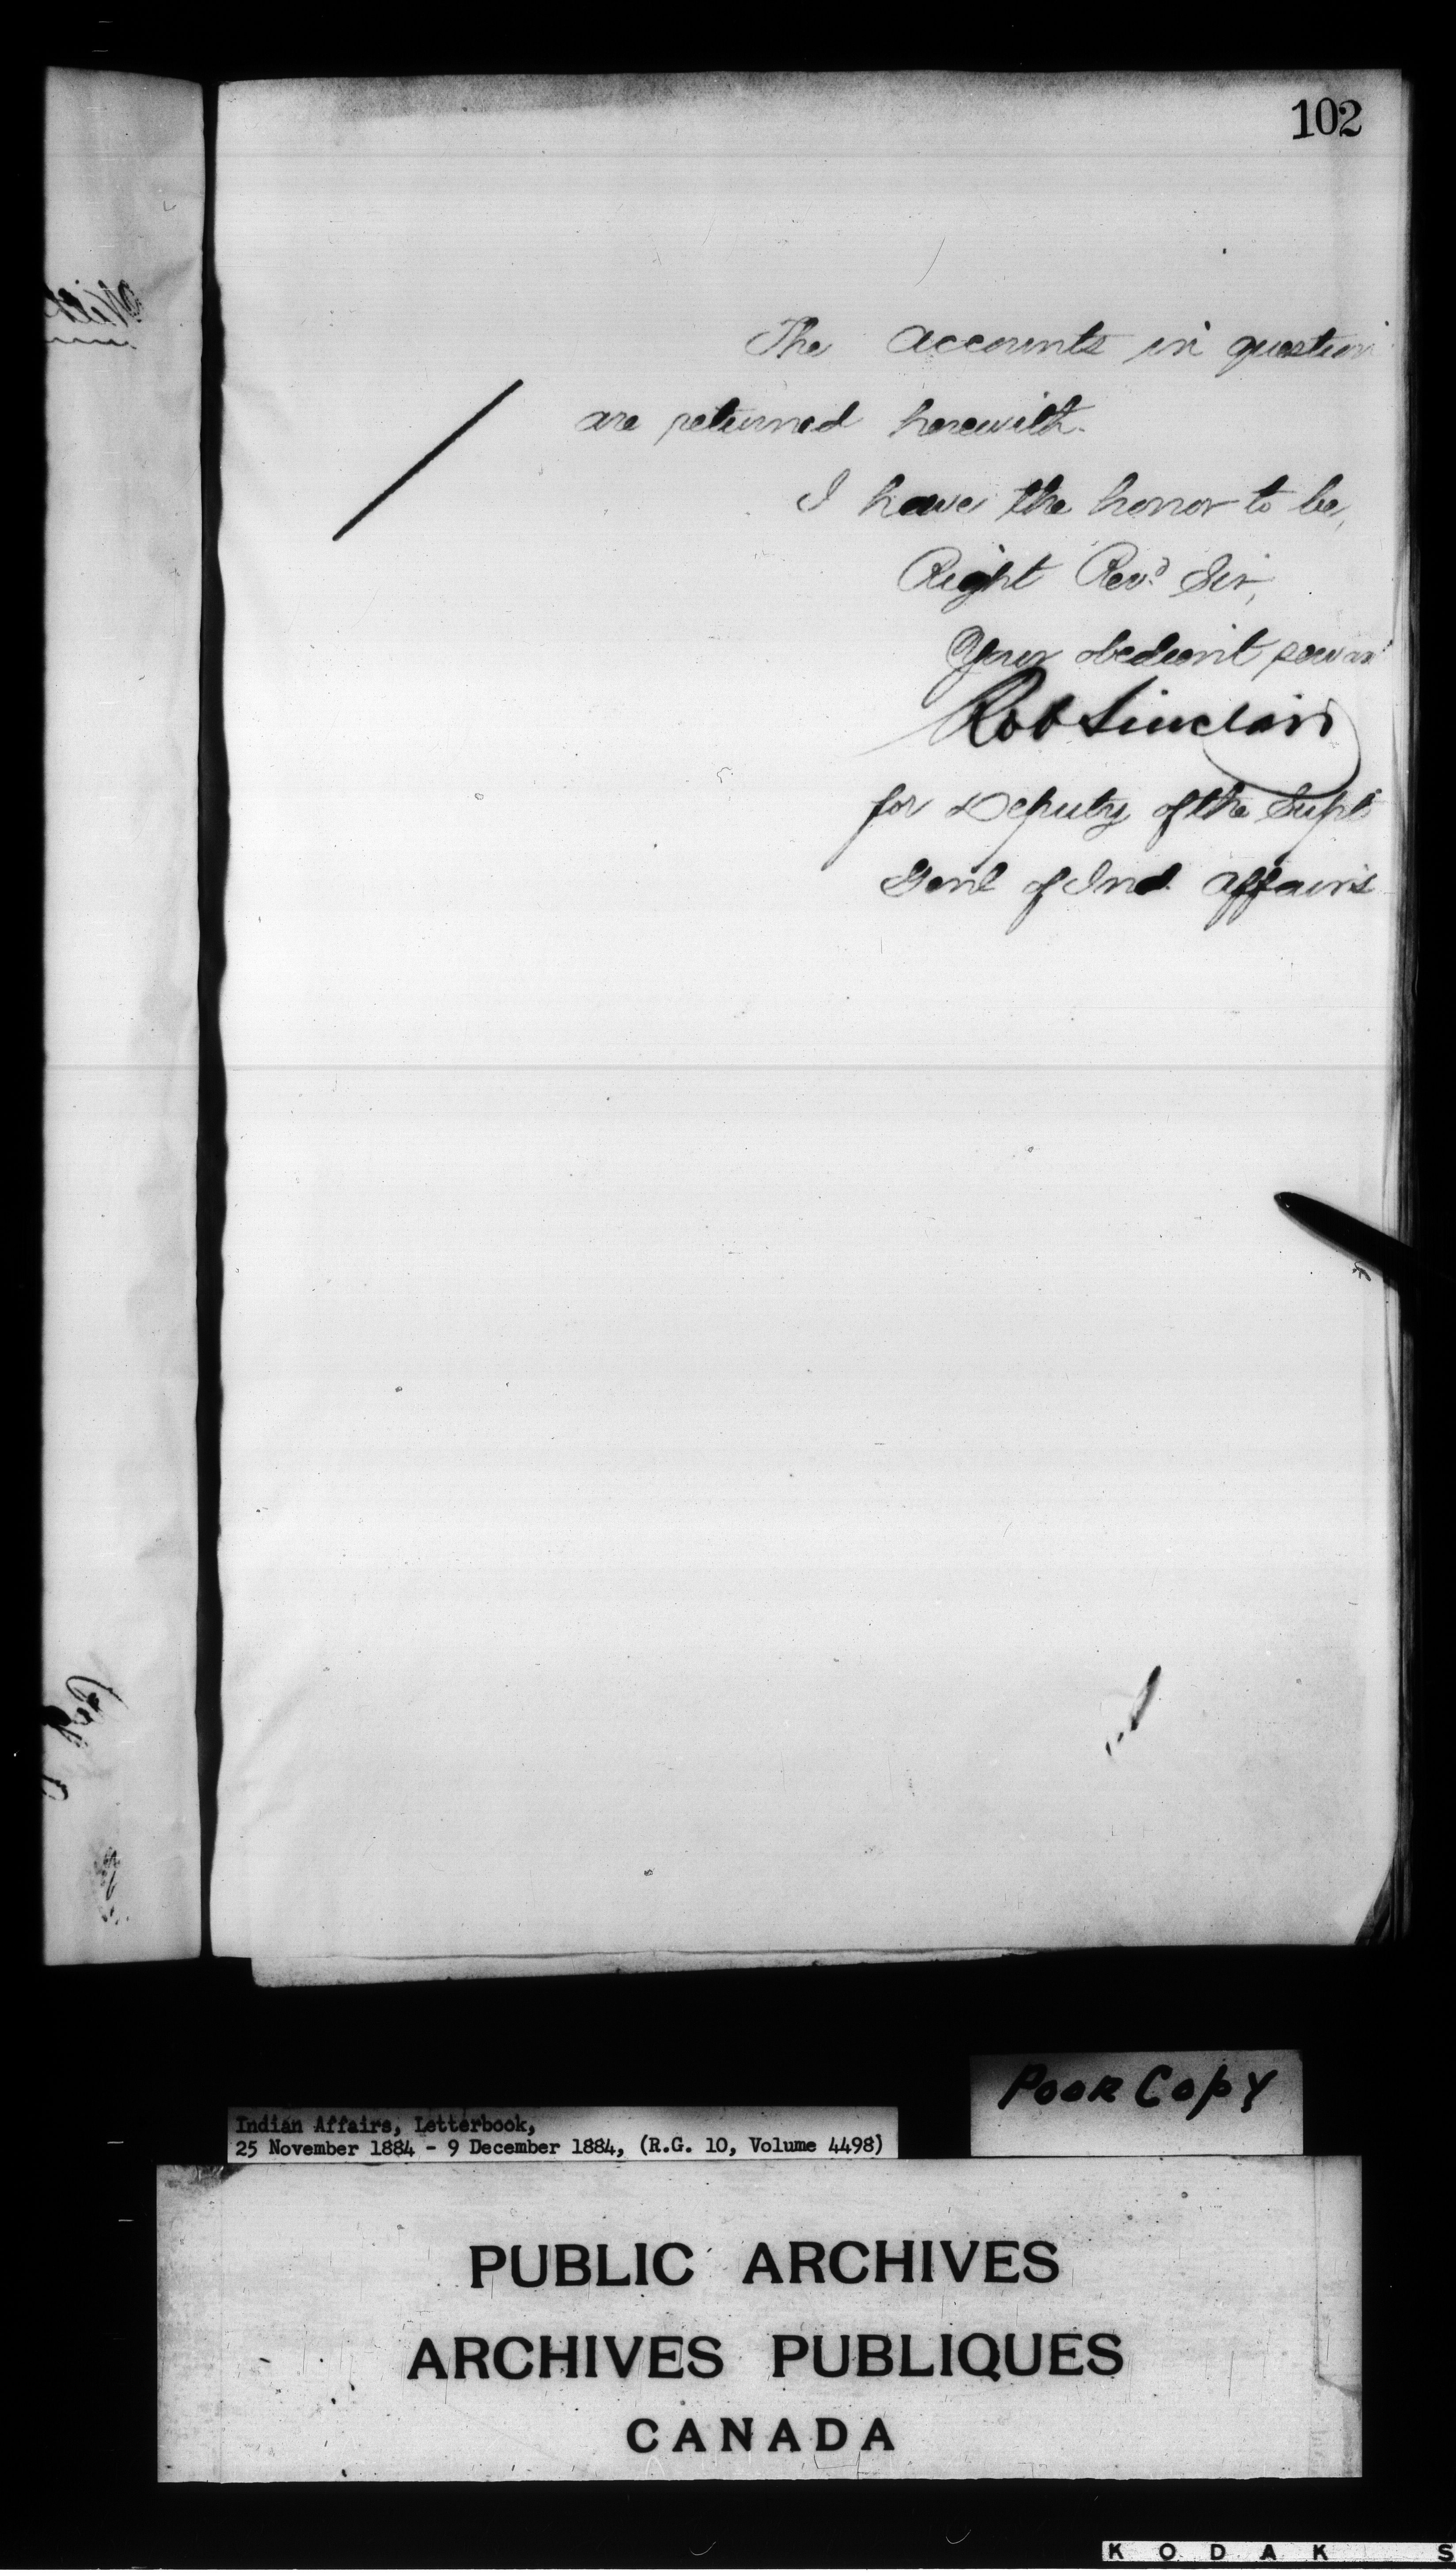 102
The accounts in question
are returned herewith.
I have the honor to be,
Right Revd. Sir,
Your obedient servan
Rob Sinclair
for Deputy of the Supt
Genl of Ind. Affairs
Poor Copy
Indian Affairs, Letterbook,
25 November 1884 - 9 December 1884, (R.G. 10, Volume 4498)
PUBLIC ARCHIVES
ARCHIVES PUBLIQUES
CANADA
KODAK S